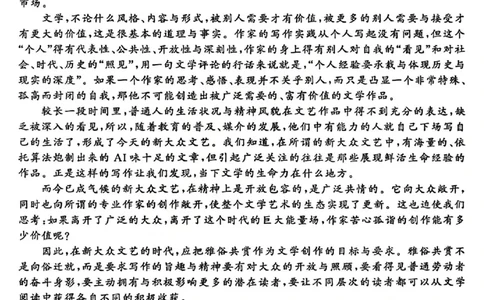 市场。
文学,不论什么风格、内容与形式,被别人需要才有价值,被更多的别人需要与接受才
有更大的价值,这是很基本的道理与事实。作家的写作实践从个人写起没有问题,但这个
“个人”得有代表性、公共性、开放性与深刻性,作家的身上得有别人对自我的“看见”和对社
会、时代、历史的“照见”,用一句文学评论的行话来说就是,“个人经验要承载与体现历史与
现实的深度”。如果一个作家的思考、感悟、表现并不关乎别人,而只是凸显一个非常特殊、
孤高而封闭的自我,那他不可能创造出被广泛需要的、富有价值的文学作品。
较长一段时间里,普通人的生活状况与精神风貌在文艺作品中得不到充分的表达,缺
乏被深入的看见,所以,随着教育的普及、媒介的发展,他们中有能力的人就自己下场写自
己的生活了,形成了今天的新大众文艺。我们知道,在所谓的新大众文艺中,有海量的、依
托算法炮制出来的 AI 味十足的文章,但引起广泛关注的往往是那些展现鲜活生命经验的
作品。正是这样的写作让我们发现,当下文学的生命力在什么地方。
而今已成气候的新大众文艺,在精神上是开放包容的,是广泛共情的。它向大众敞开,
同时也向所谓的专业作家的创作敞开,使整个文学艺术的生态实现了更新。这也迫使我们
思考:如果离开了广泛的大众,离开了这个时代的巨大能量场,作家苦心孤诣的创作能有多
少价值呢?
因此,在新大众文艺的时代,应把雅俗共赏作为文学创作的目标与要求。雅俗共赏不
是向俗迁就,而是要求写作的旨趣与精神要有对大众的开放与照顾,要看得见普通劳动者
的奋斗身影,要主动拥有与积极影响更多的潜在读者,要让不同层次的读者都可以从文学
阅读中获得各自不同的积极收获。